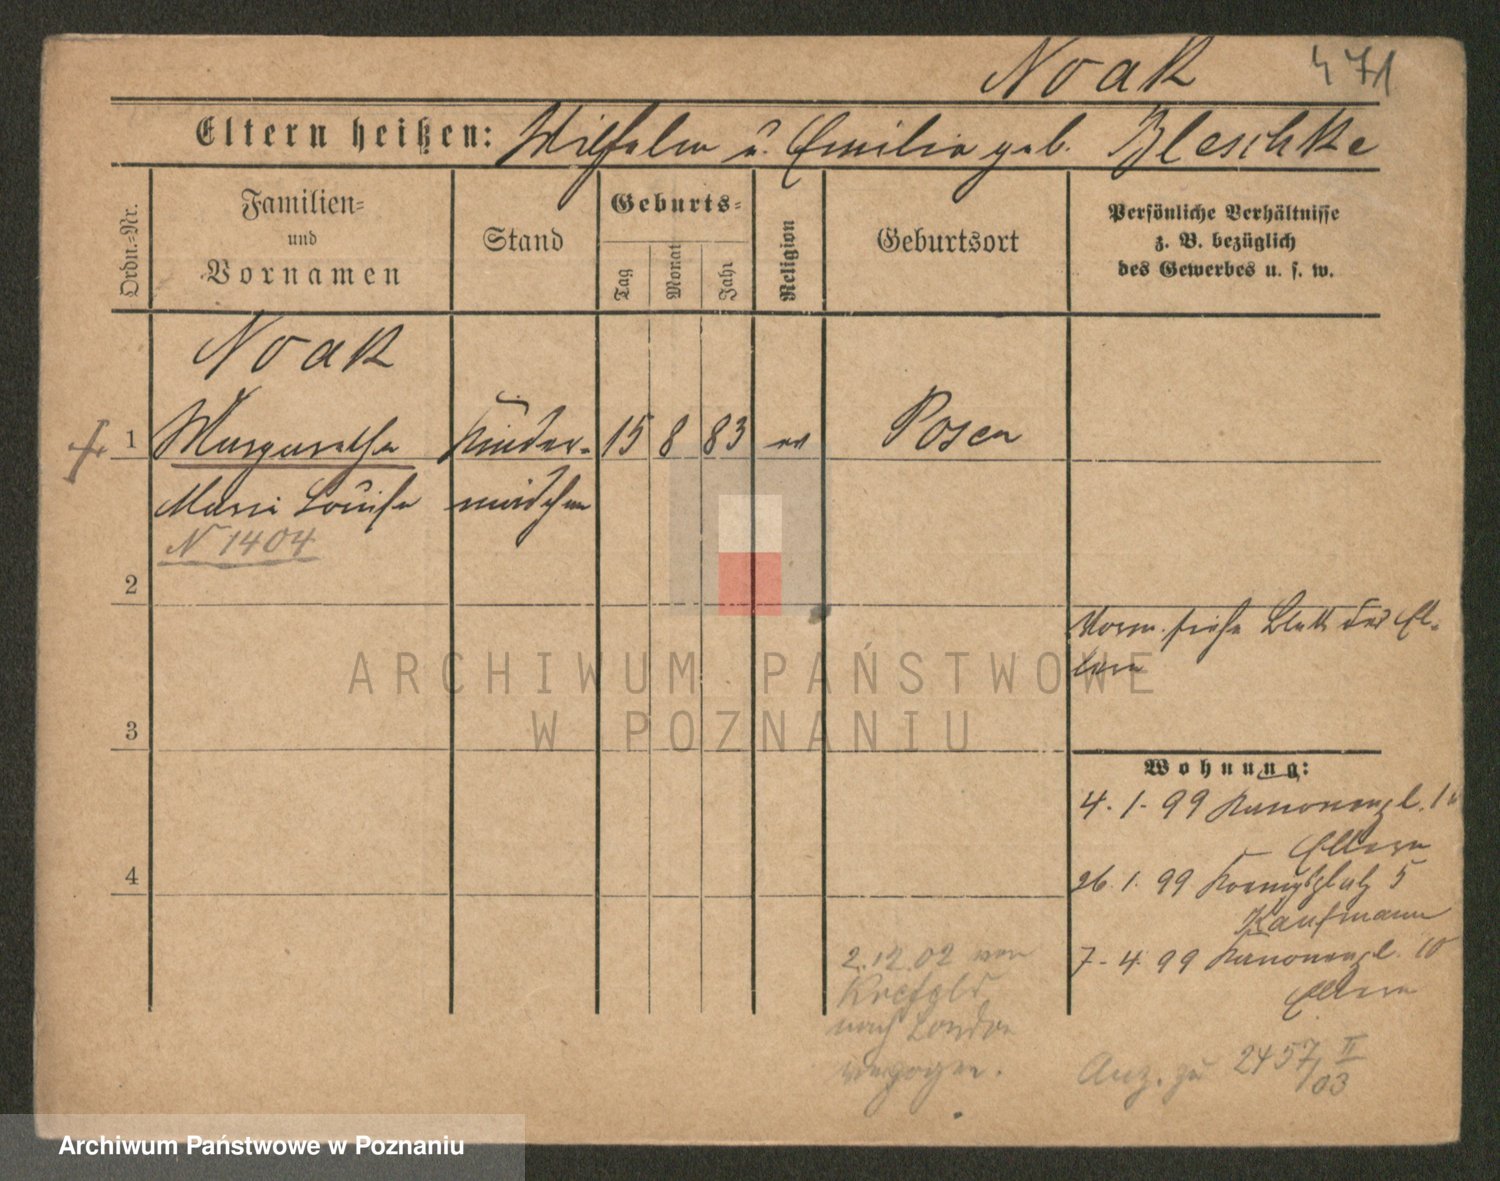 Noak 471
Eltern heißen: Wilhelm u. Emilie geb. Bleschke
Ordn.-Nr.
Familien-
und
Vornamen
Stand
Geburts-
Tag
Monat
Jahr
Religion
Geburtsort
Persönliche Verhältnisse
z. B. bezüglich
des Gewerbes u. s. w.
Noak
1 Margarethe Kinder- 15 8 83 ev Posen
Marie Louise mädchen
N 1404
2
Vorm. siehe Blatt der El-
tern
ARCHIWUM PAŃSTWOWE
W POZNANIU
3
Wohnung:
4. 1. 99 Kanonenpl. 10
Eltern
4
26. 1. 99 Koenigsplatz 5
Kaufmann
7. 4. 99 Kanonenpl. 10
Eltern
2.12.02 von
Krefeld
nach London
verzogen.
Anz. zu 2457 II/03
Archiwum Państwowe w Poznaniu